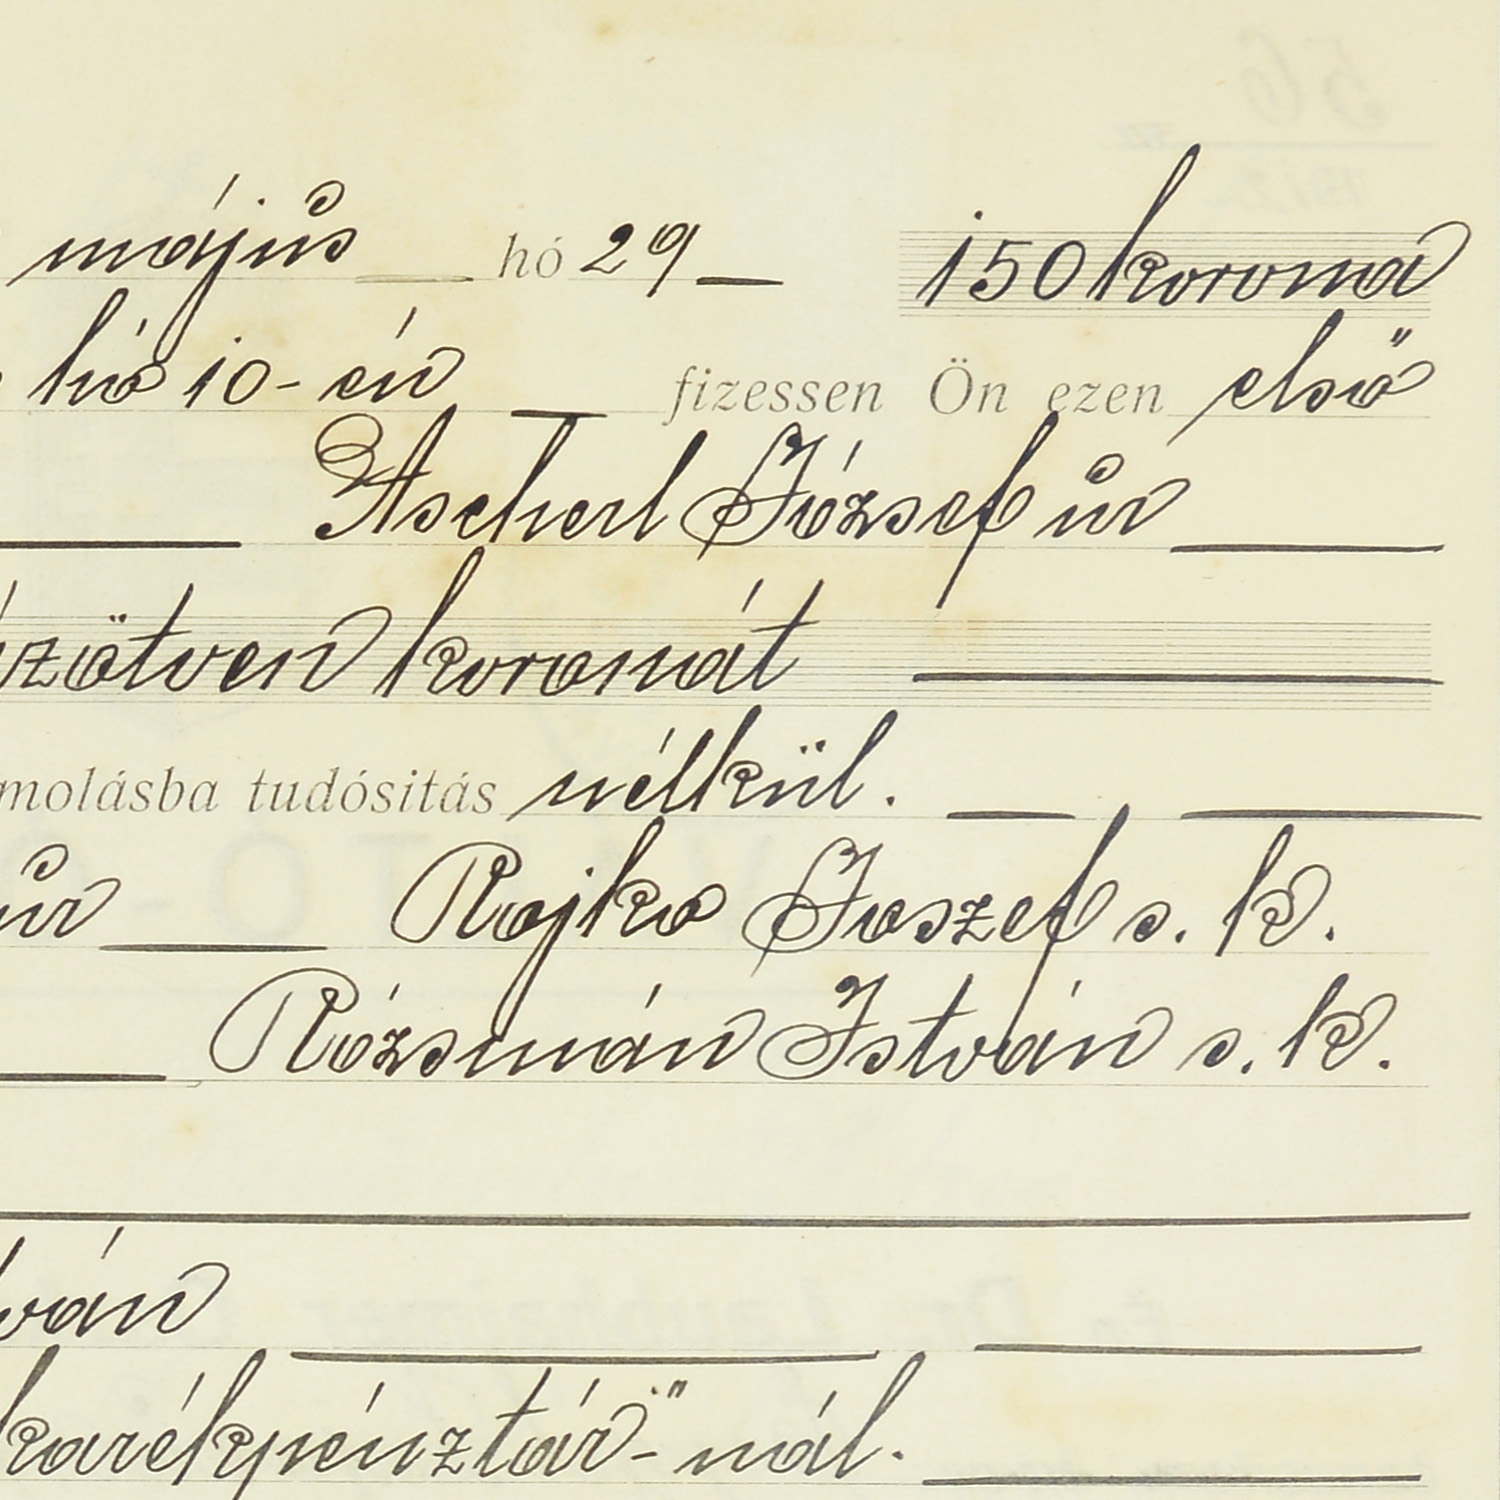 május hó 29 150 korona
hó 10-én fizessen Ön ezen első
Ascherl József úr
ötven koronát
molásba tudósitás nélkül.
úr Rojko Joszef s. k.
Rózsmán István s. k.
ván
karékpénztár"-nál.